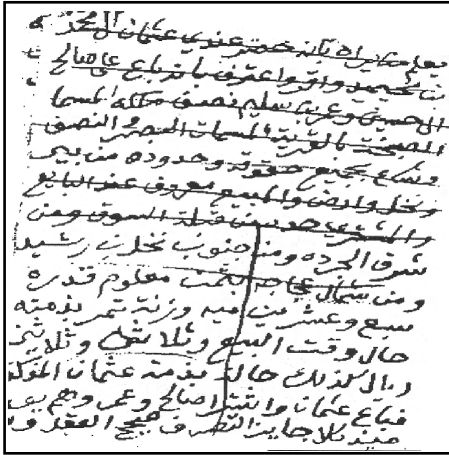 يعلم من يراه بأنه حضر عندي عثمان ال
بن حميد واقر واعترف بانه باع على صالح
ال حسين وعمر بن سليم نصف ملكه المسما
بالقرية المسمات البصر والنصف
مشاع بجميع حقوقه وحدوده من بير
ونخل وارض والمبيع معروف عند البايع
والمشتري حده من قبلة السوق ومن
شرق الجرده ومن جنوب نخل بن رشيد
ومن شمال بثمن معلوم قدره
سبع وعشرين ميه وزنة تمر بذمته
حال وقت البيع وثلاثة وثلاثين
ريال كذلك حالة بذمة عثمان المذكور
فباع عثمان واشترا صالح وعمر وهم يو
ميذ كلا جايز التصرف صحيح العقد و